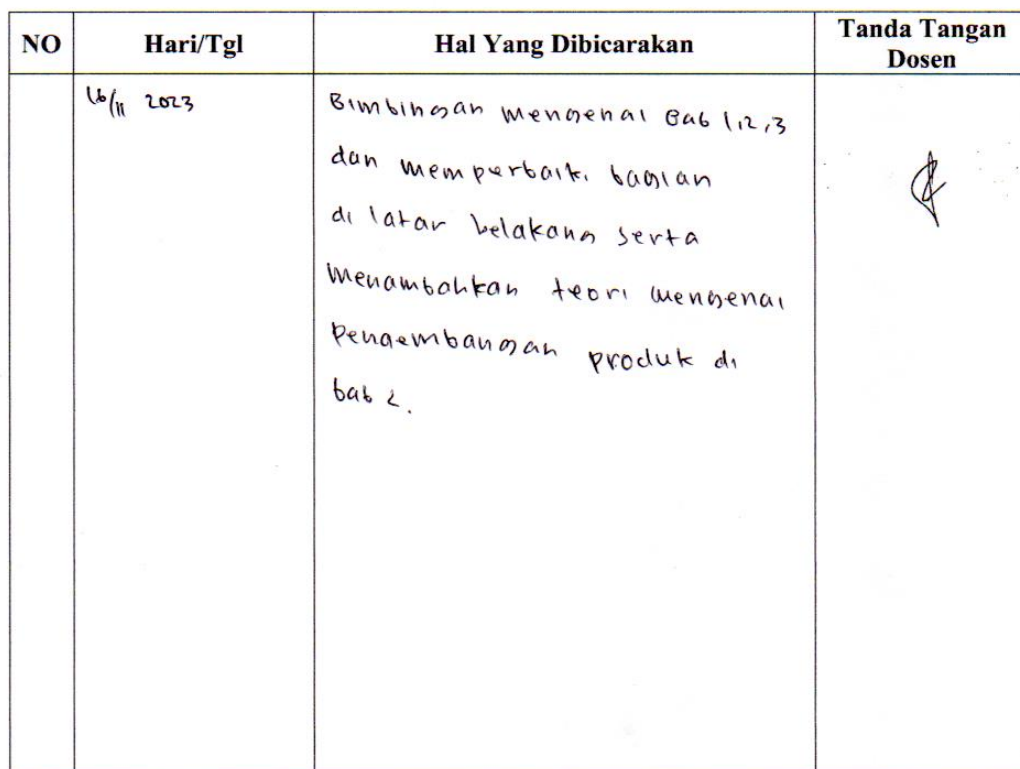 NO Hari/Tgl Hal Yang Dibicarakan Tanda Tangan Dosen
16/11 2023
Bimbingan mengenai Bab 1,2,3
dan memperbaiki bagian
di latar belakang serta
menambahkan teori mengenai
Pengembangan produk di
bab 2.